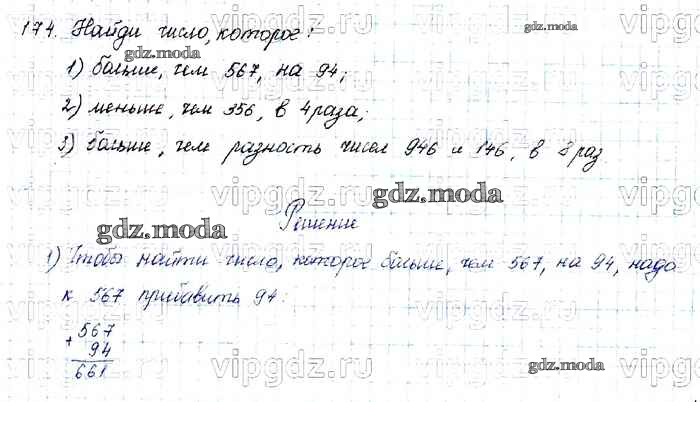 174. Найди число, которое:
1) больше, чем 567, на 94;
2) меньше, чем 356, в 4 раза;
3) больше, чем разность чисел 946 и 146, в 8 раз.
Решение
1) Чтобы найти число, которое больше, чем 567, на 94, надо
к 567 прибавить 94:
+ 567
94
661
gdz.moda
gdz.moda
gdz.moda
gdz.moda
gdz.moda
gdz.moda
gdz.moda
vipgdz.ru